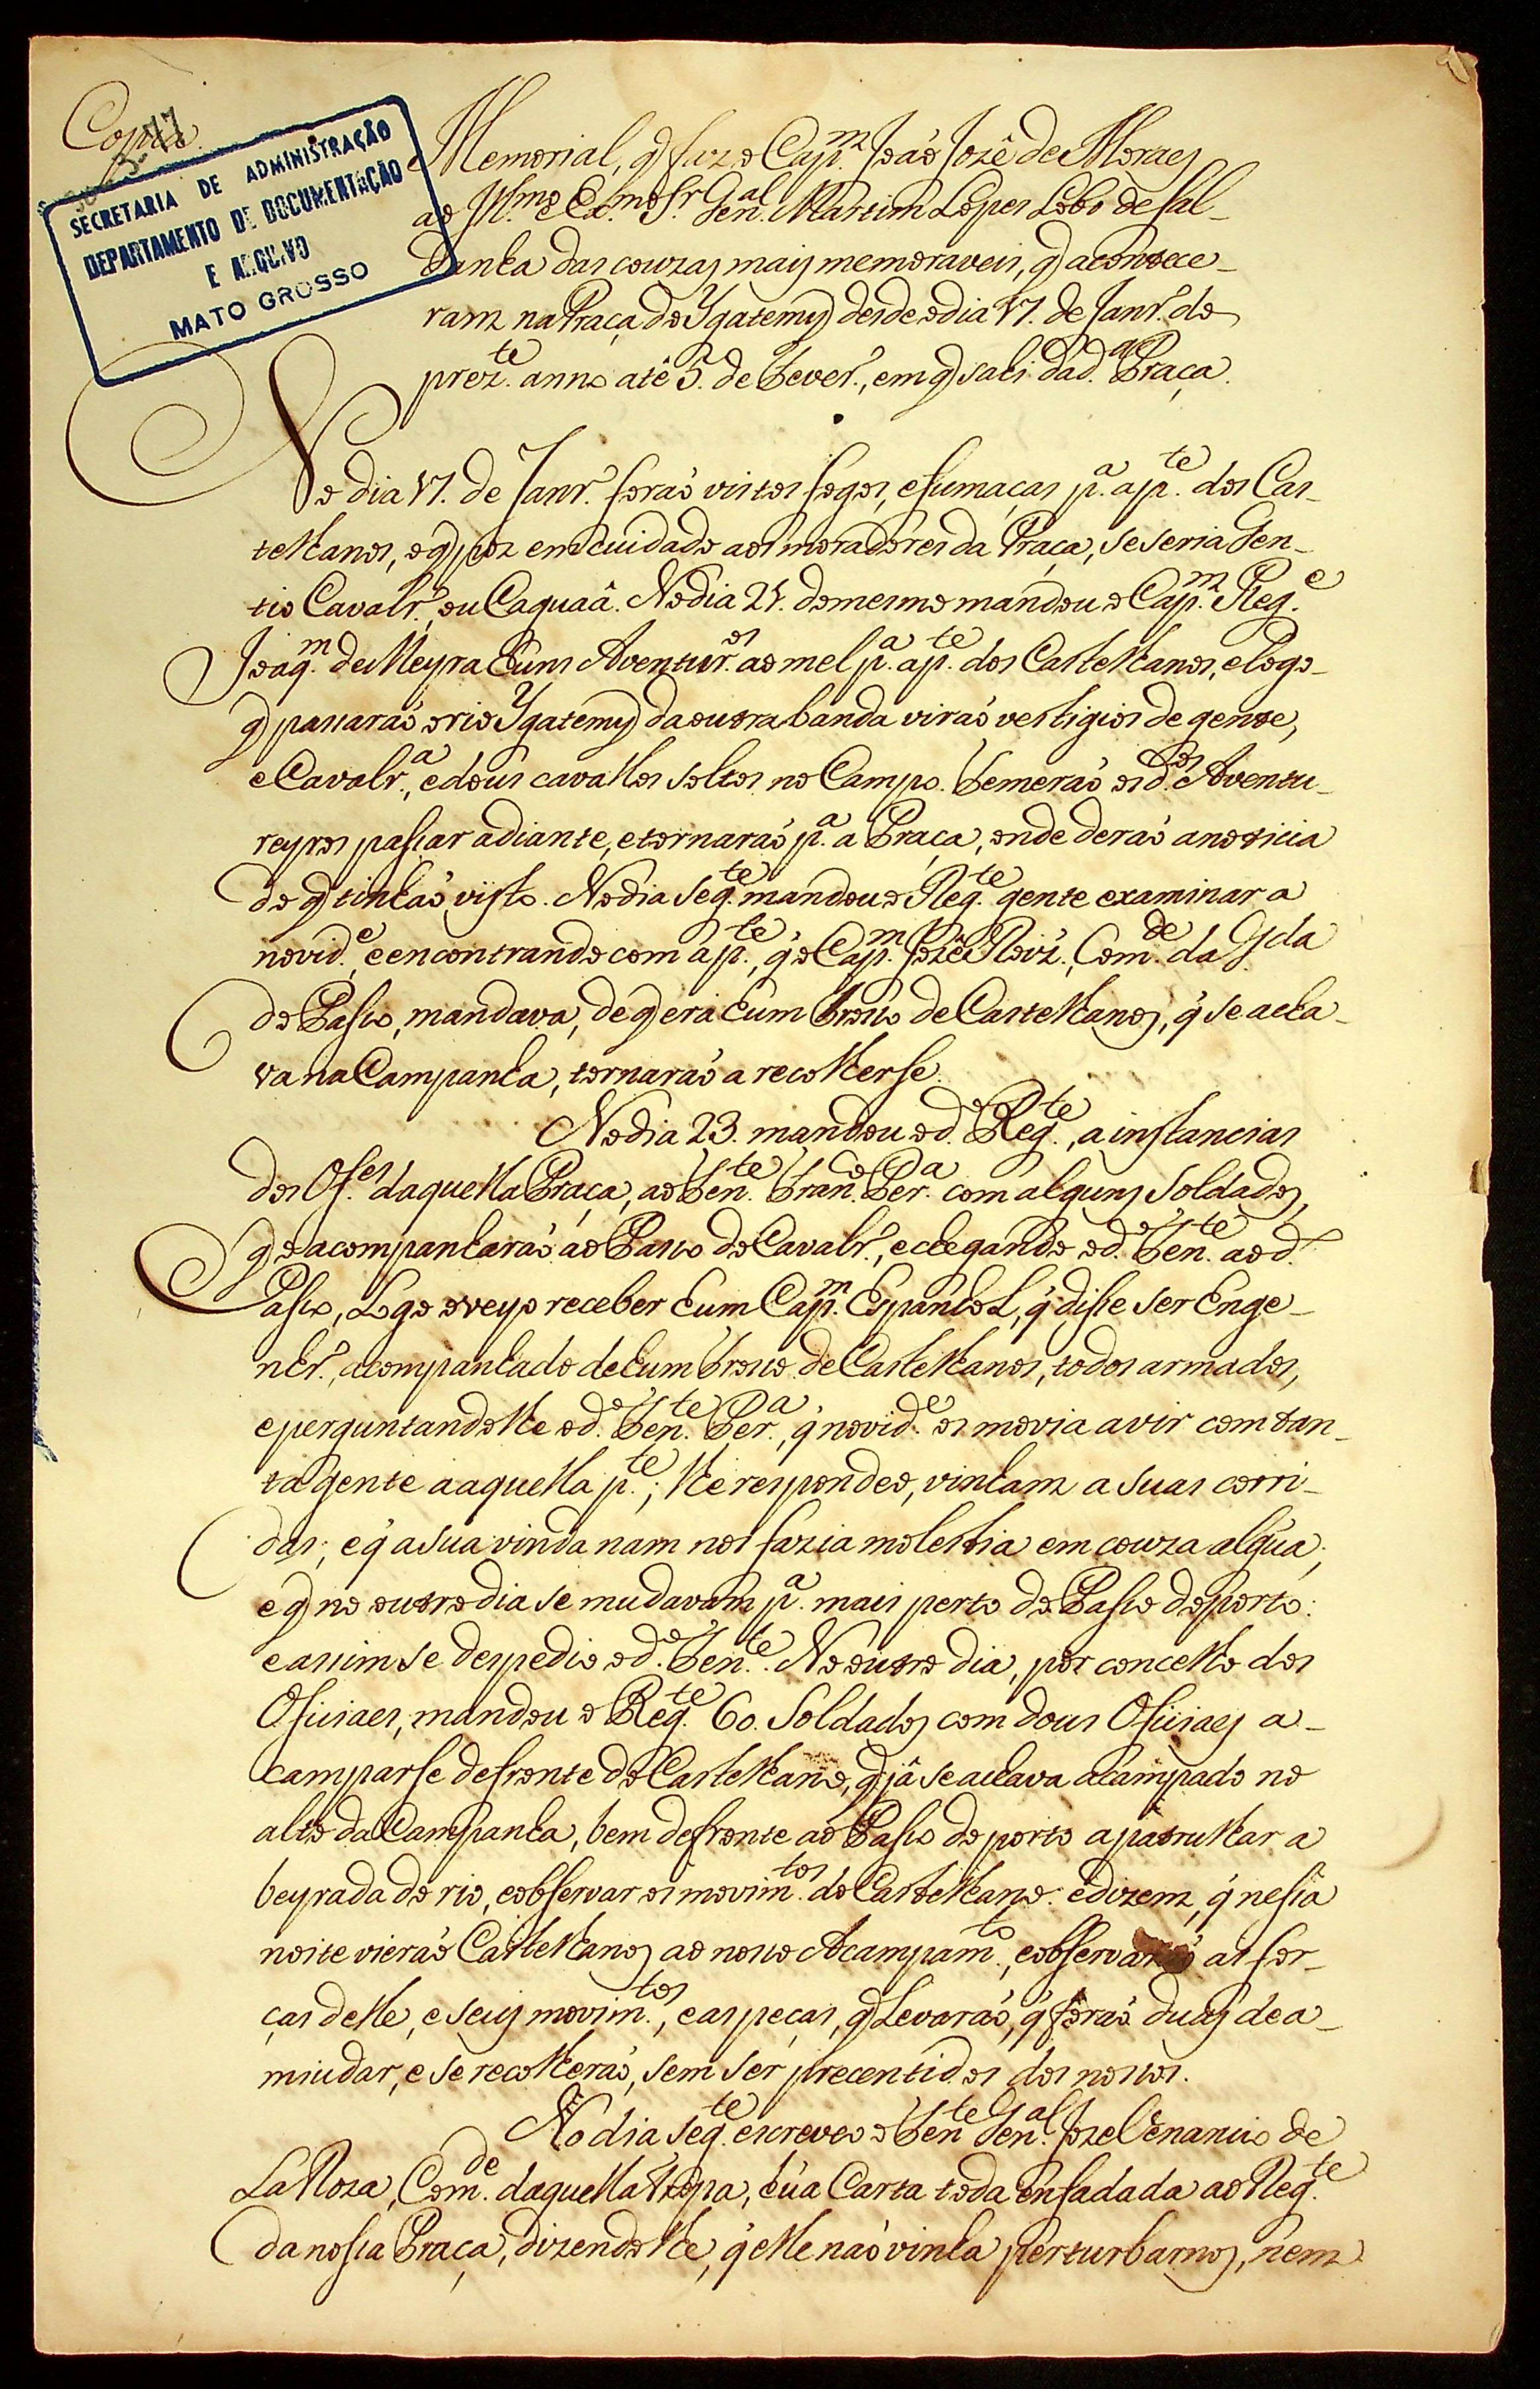 Copia.
SECRETARIA DE ADMINISTRAÇÃO
DEPARTAMENTO DE DOCUMENTAÇÃO
E ARQUIVO
MATO GROSSO
Memorial, q̃ faz o Cap.m João Jozê de Moraes
ao Ill.mo e Ex.mo S.r Gen.al Martim Lopes Lobo de Sal-
danha das couzas mais memoraveis, q̃ acontece-
ram na Praça do Ygatemy desde o dia 17. de Janr.o do
prez.te anno atê 5. de Fever.o, em q̃ sahi da d.a Praça.
No dia 17. de Janr.o forão vistos fogos, e fumaças p.a a p.te dos Cas-
telhanos, o q̃ poz em cuidado aos moradores da Praça, se seria Gen-
tio Cavalr.o, ou Caguaâ. No dia 21. do mesmo mandou o Cap.m Reg.e
Joaq.m de Meyra huns Aventur.os ao mel p.a a p.te dos Castelhanos, e logo
q̃ passarão o rio Ygatemy da outra banda virão vestigios de gente,
e Cavalr.a, e dous cavallos soltos no Campo. Temerão os d.os Aventu-
reyros passar adiante, e tornarão p.a a Praça, onde derão a noticia
do q̃ tinhão visto. No dia seg.te mandou o Reg.te gente examinar a
novid.e, e encontrando com a p.te, q̃ o Cap.m Jozê Roiz. Com.de da G.da
do Passo, mandava, de q̃ era hum trosso de Castelhanos, q̃ se acha-
va na Campanha, tornarão a recolherse.
No dia 23. mandou o d.o Reg.te, a instancias
dos Of.es daquella Praça, ao Ten.te Fran.co Per.a com alguns Soldados,
q̃ o acompanharão ao Passo do Cavalr.o, e chegando o d.o Ten.te ao d.o
Passo, logo o veyo receber hum Cap.m Espanhol, q̃ disse ser Enge-
nhr.o, acompanhado de hum trosso de Castelhanos, todos armados,
e perguntandolhe o d.o Ten.te Per.a, q̃ novid.e os movia a vir com tan-
ta gente a aquella p.te; lhe respondeo, vinham a suas corri-
das; e q̃ a sua vinda nam nos fazia molestia em couza algũa;
e q̃ no outro dia se mudavam p.a mais perto do Passo do porto:
e assim se despedio o d.o Ten.te. No outro dia, por concelho dos
Oficiaes, mandou o Reg.te 60. Soldados com dous Oficiaes a-
camparse defronte do Castelhano, q̃ jâ se achava acampado no
alto da Campanha, bem defronte ao Passo do porto a patrulhar a
beyrada do rio, e observar os movim.tos do Castelhano: e dizem, q̃ nessa
noite vierão Castelhanos ao nosso Acampam.to, e observarão as for-
ças delle, e seus movim.tos, e as peças, q̃ levarão, q̃ forão duas de a-
miudar, e se recolherão, sem ser precentidos dos nossos.
No dia seg.te escreveo o Ten.te Gen.al Joze Venancio de
La Rosa, Com.de daquella Tropa, hũa Carta toda enfadada ao Reg.te
da nossa Praça, dizendolhe, q̃ elle não vinha perturbarnos, nem